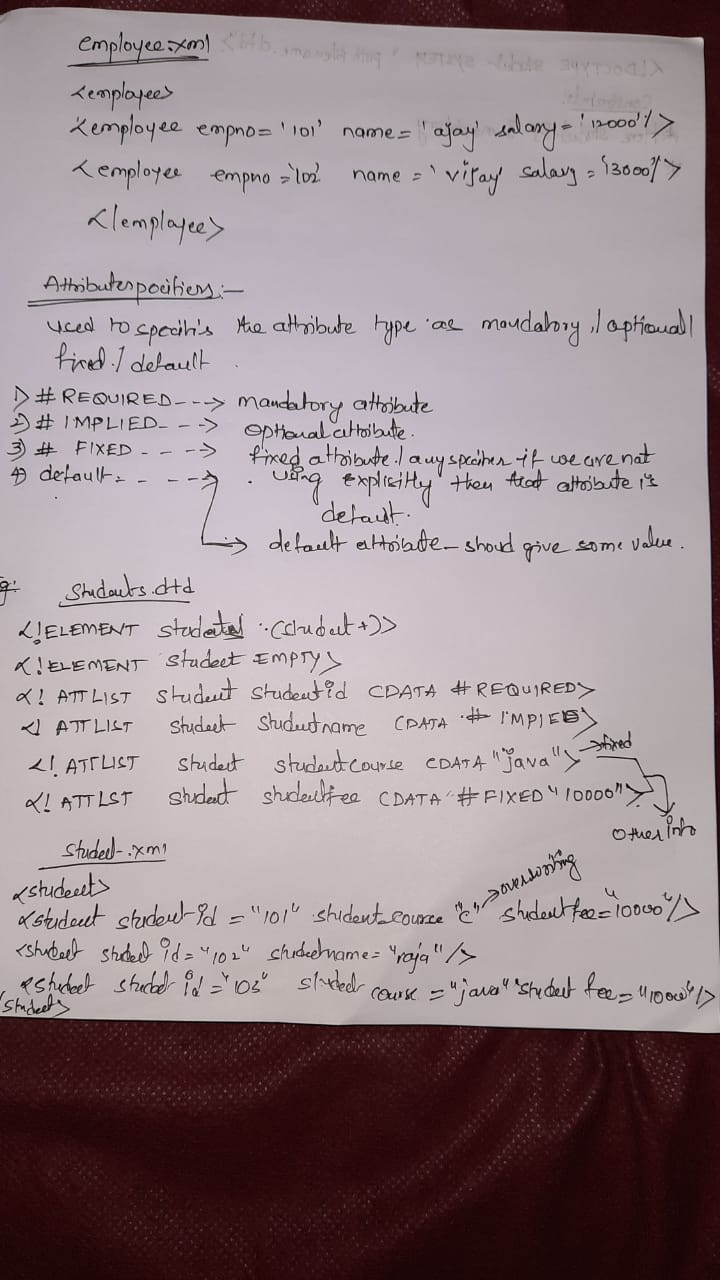 employee.xml
<employee>
<employee empno='101' name='ajay' salary='12000'/>
<employee empno='102' name='vijay' salary='13000'/>
</employee>
Attributespecifiers:-
used to specify the attribute type as mandatory / optional /
fixed / default.
1) # REQUIRED - - -> mandatory attribute
2) # IMPLIED - - -> optional attribute.
3) # FIXED - - - -> fixed attribute / any specifier if we are not
4) default - - - - -> . using explicitly then that attribute is
default.
-> default attribute - should give some value.
Students.dtd
<!ELEMENT students (student+)>
<!ELEMENT student EMPTY>
<! ATTLIST student studentid CDATA #REQUIRED>
<! ATTLIST student studentname CDATA # IMPIED>
<!. ATTLIST student studentcourse CDATA "java"> -> fixed
<! ATTLST student studentfee CDATA #FIXED "10000">
other info
Student.xml
-> overwriting
<student>
<student student-id = "101" student_course "c" student fee="10000"/>
<student student id="102" studentname="raja"/>
<student student id="103" student course="java" student fee="10000"/>
student>